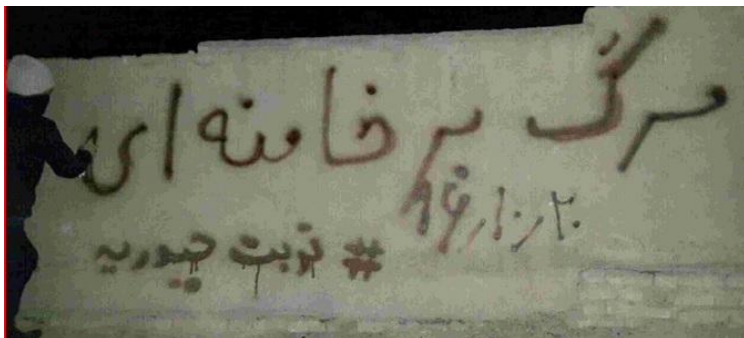 مرگ بر خامنه ای
۲۰ر۱۰ر۹۶
# تربت حیدریه